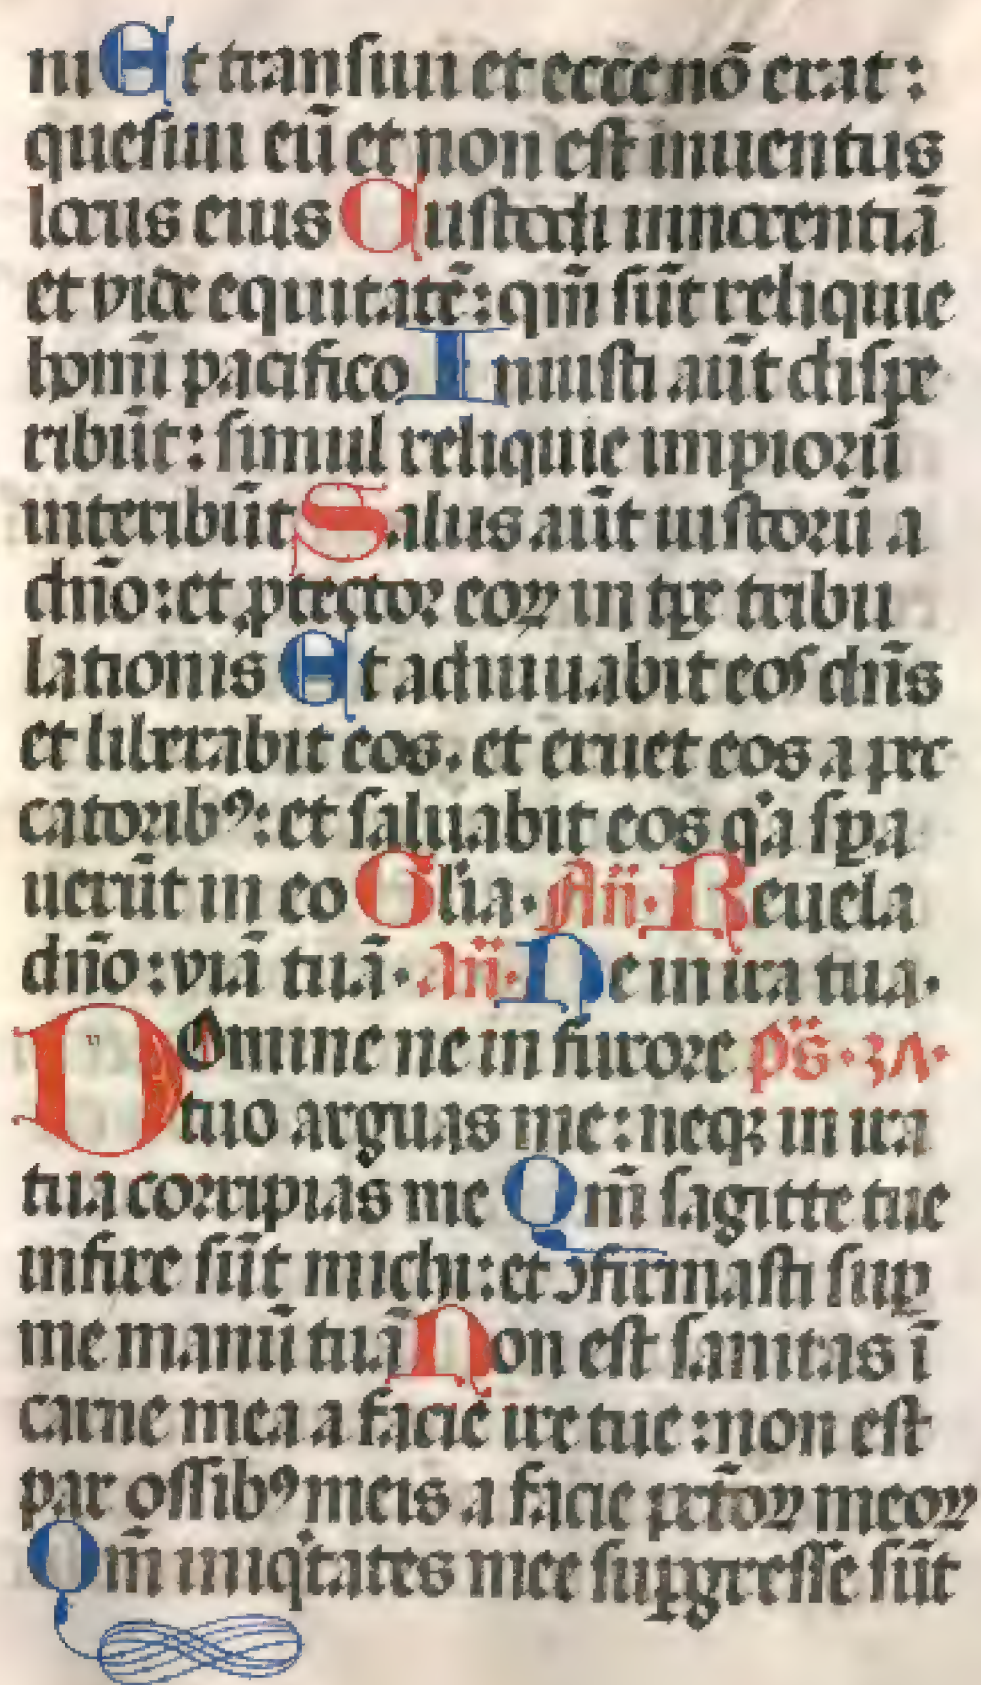 ni Et transiui et ecce nō erat :
quesiui eū et non est inuentus
locus eius Custodi innocentiā
et vide equitatē : qm̄ sūt reliquie
homī pacifico Iniusti aūt dispe
ribūt : simul reliquie impiorū
interibūt Salus aūt iustorū a
dn̄o : et ꝓtector eoꝝ in tp̄e tribu
lationis Et adiuuabit eos dn̄s
et liberabit eos . et eruet eos a pec
catoribꝰ : et saluabit eos qͥa sꝑa
uerūt in eo Gl̄ia . An̄ . Reuela
dn̄o : viā tuā . An̄ . Ne in ira tua .
Domine ne in furore ps̄ . 37 .
tuo arguas me : neqꝫ in ira
tua corripias me Qm̄ sagitte tue
infixe sūt michi : et ꝯfirmasti suꝑ
me manū tuā Non est sanitas ī
carne mea a facie ire tue : non est
pax ossibꝰ meis a facie pctōꝝ meoꝝ
Qm̄ iniqͥtates mee suꝑgresse sūt